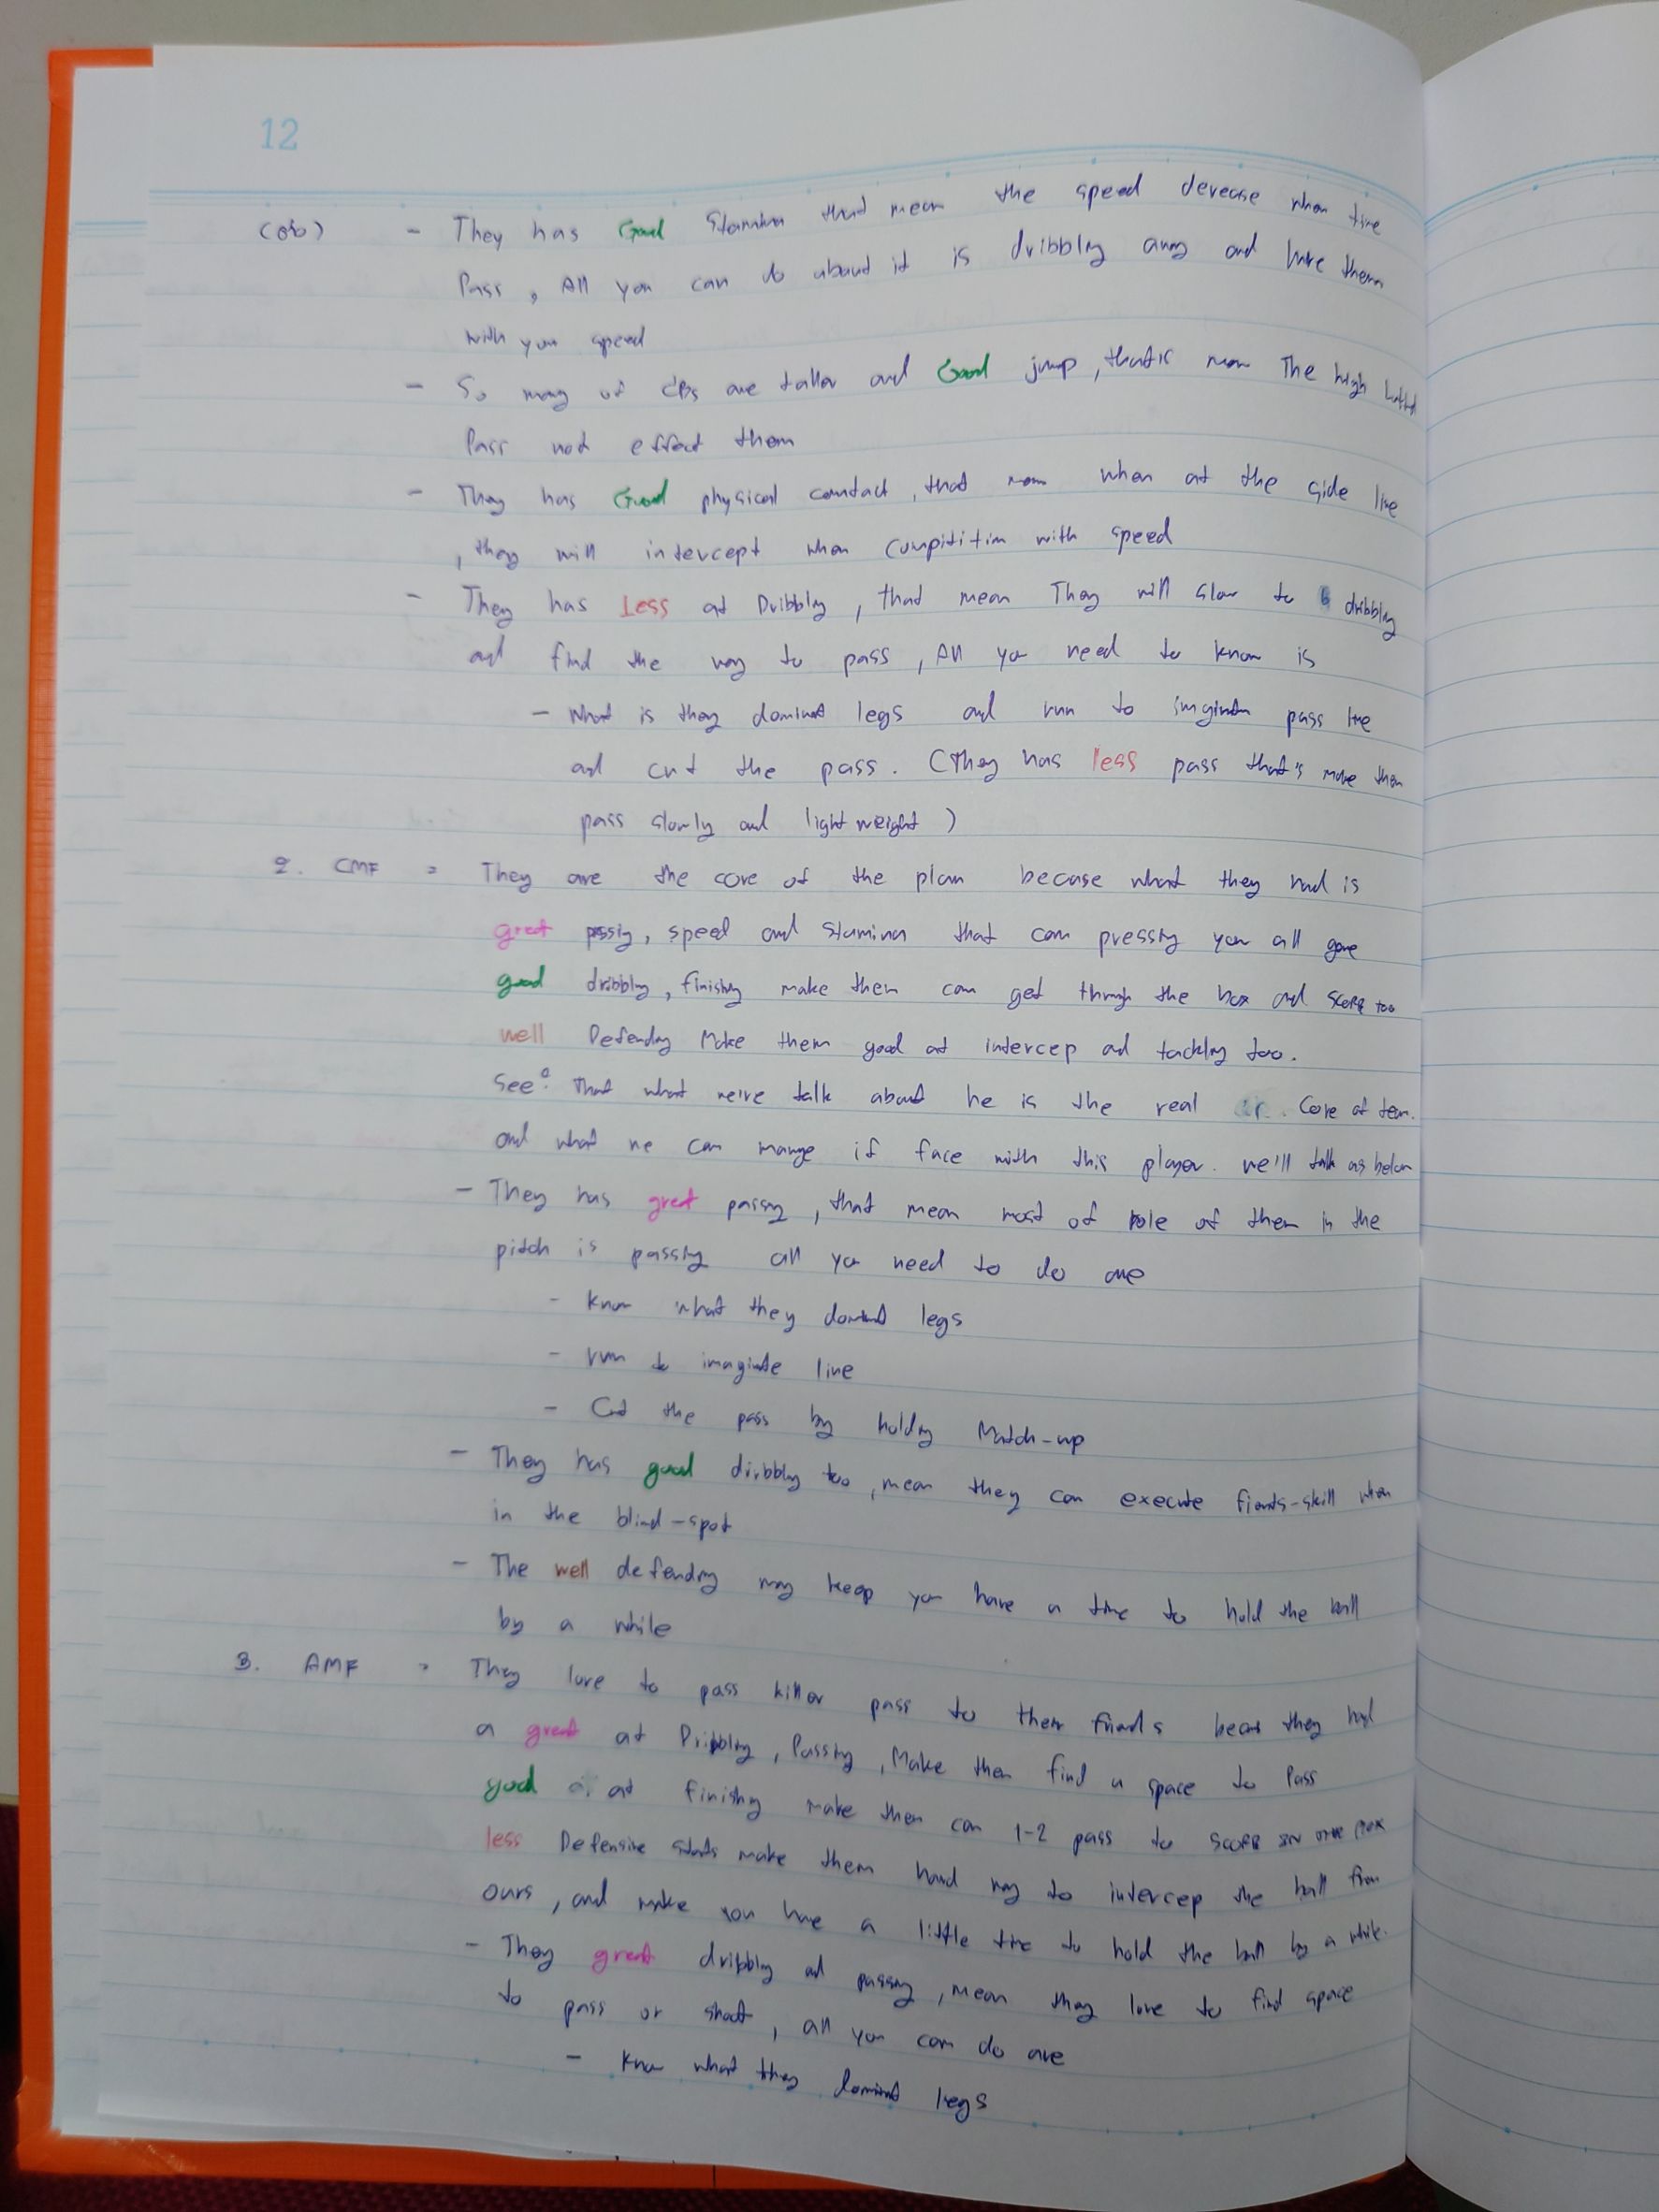 12
- They has Good Stamina that mean the speed decrease when time
Pass, All you can do about it is dribbling away and have them
with you speed
- So many of CBs are taller and Good jump, that's mean The high
Pass not effect them
- They has Good physical contact, that mean when at the side line
, they will intercept when compitition with speed
- They has Less at Dribbling, that mean They will slow to dribbling
and find the way to pass, All you need to know is
- What is they dominat legs and run to pass line
and cut the pass. (They has less pass that's make them
pass slowly and light weight)
2. CMF = They are the core of the plan becase what they had is
great passing, speed and stamina that can pressing you all game
good dribbling, finishing make them can get through the box and score too
well Defending Make them good at intercep and tackling too.
See? That what we've talk about he is the real Core of team.
and what we can mange if face with this player. we'll talk as below
- They has great passing, that mean most of role of them in the
pitch is passing all you need to do are
- know what they dominat legs
- run to imaginate line
- Cut the pass by holding Match-up
- They has good dribbling too, mean they can execute skill when
in the blind-spot
- The well defending may keep you have a time to hold the ball
by a while
3. AMF = They love to pass killer pass to their they had
a great at Dribbling, Passing, Make them find a space to Pass
good at finishing make them can 1-2 pass to score in the box
less Defensive stats make them hard way to intercep the ball from
ours, and make you have a little time to hold the ball by a while.
- They great dribbling and passing, mean they love to find space
to pass or shoot, all you can do are
- know what they dominat legs